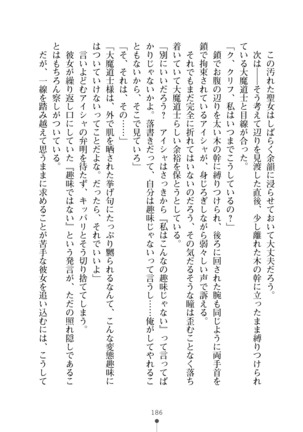 この汚れた聖女はしばらく余韻に浸らせておいて大丈夫だろう。
次は――そう考えて辺りを見渡した直後、少し離れた木の幹に立ったまま縛りつけられた大魔道士と目線が合った。
「ク、クリフ、私はいつまでこうしているの？」
鎖でお腹の辺りを太い木の幹に縛りつけられ、後ろに回された腕も同じように両手首を
鎖で拘束されているアイシャが、身じろぎしながら弱々しい声で訴える。
それでもまだ完全に折れてはいないのだろう。その気だるそうな瞳は歪むことなく落ち
着いていて大魔道士らしい余裕を保とうとしている。
「別にいいだろう？　アイシャはさっきから『私はこんなの趣味じゃない』って言ってば
かりじゃないか。落書きだって、自分は趣味じゃないって言うし……。俺がしてやれるこ
とがないから、そこで見ていろ」
「そ、それは、その……」
「大魔道士様は、外で肌を晒された挙げ句にたっぷり嬲られるなんて、こんな変態趣味に
ついていけないってことなんだろう。だったら、それでいいよ」
言いよどむアイシャの弁明を待たず、キッパリと切り捨ててしまう。
彼女が繰り返し口にしていた「趣味ではない」という発言が、ただの照れ隠しであるこ
とはもちろん察しがついている。
だが、一線を踏み越えて思うままに求めることが苦手な彼女を追い込むには、こうして
186